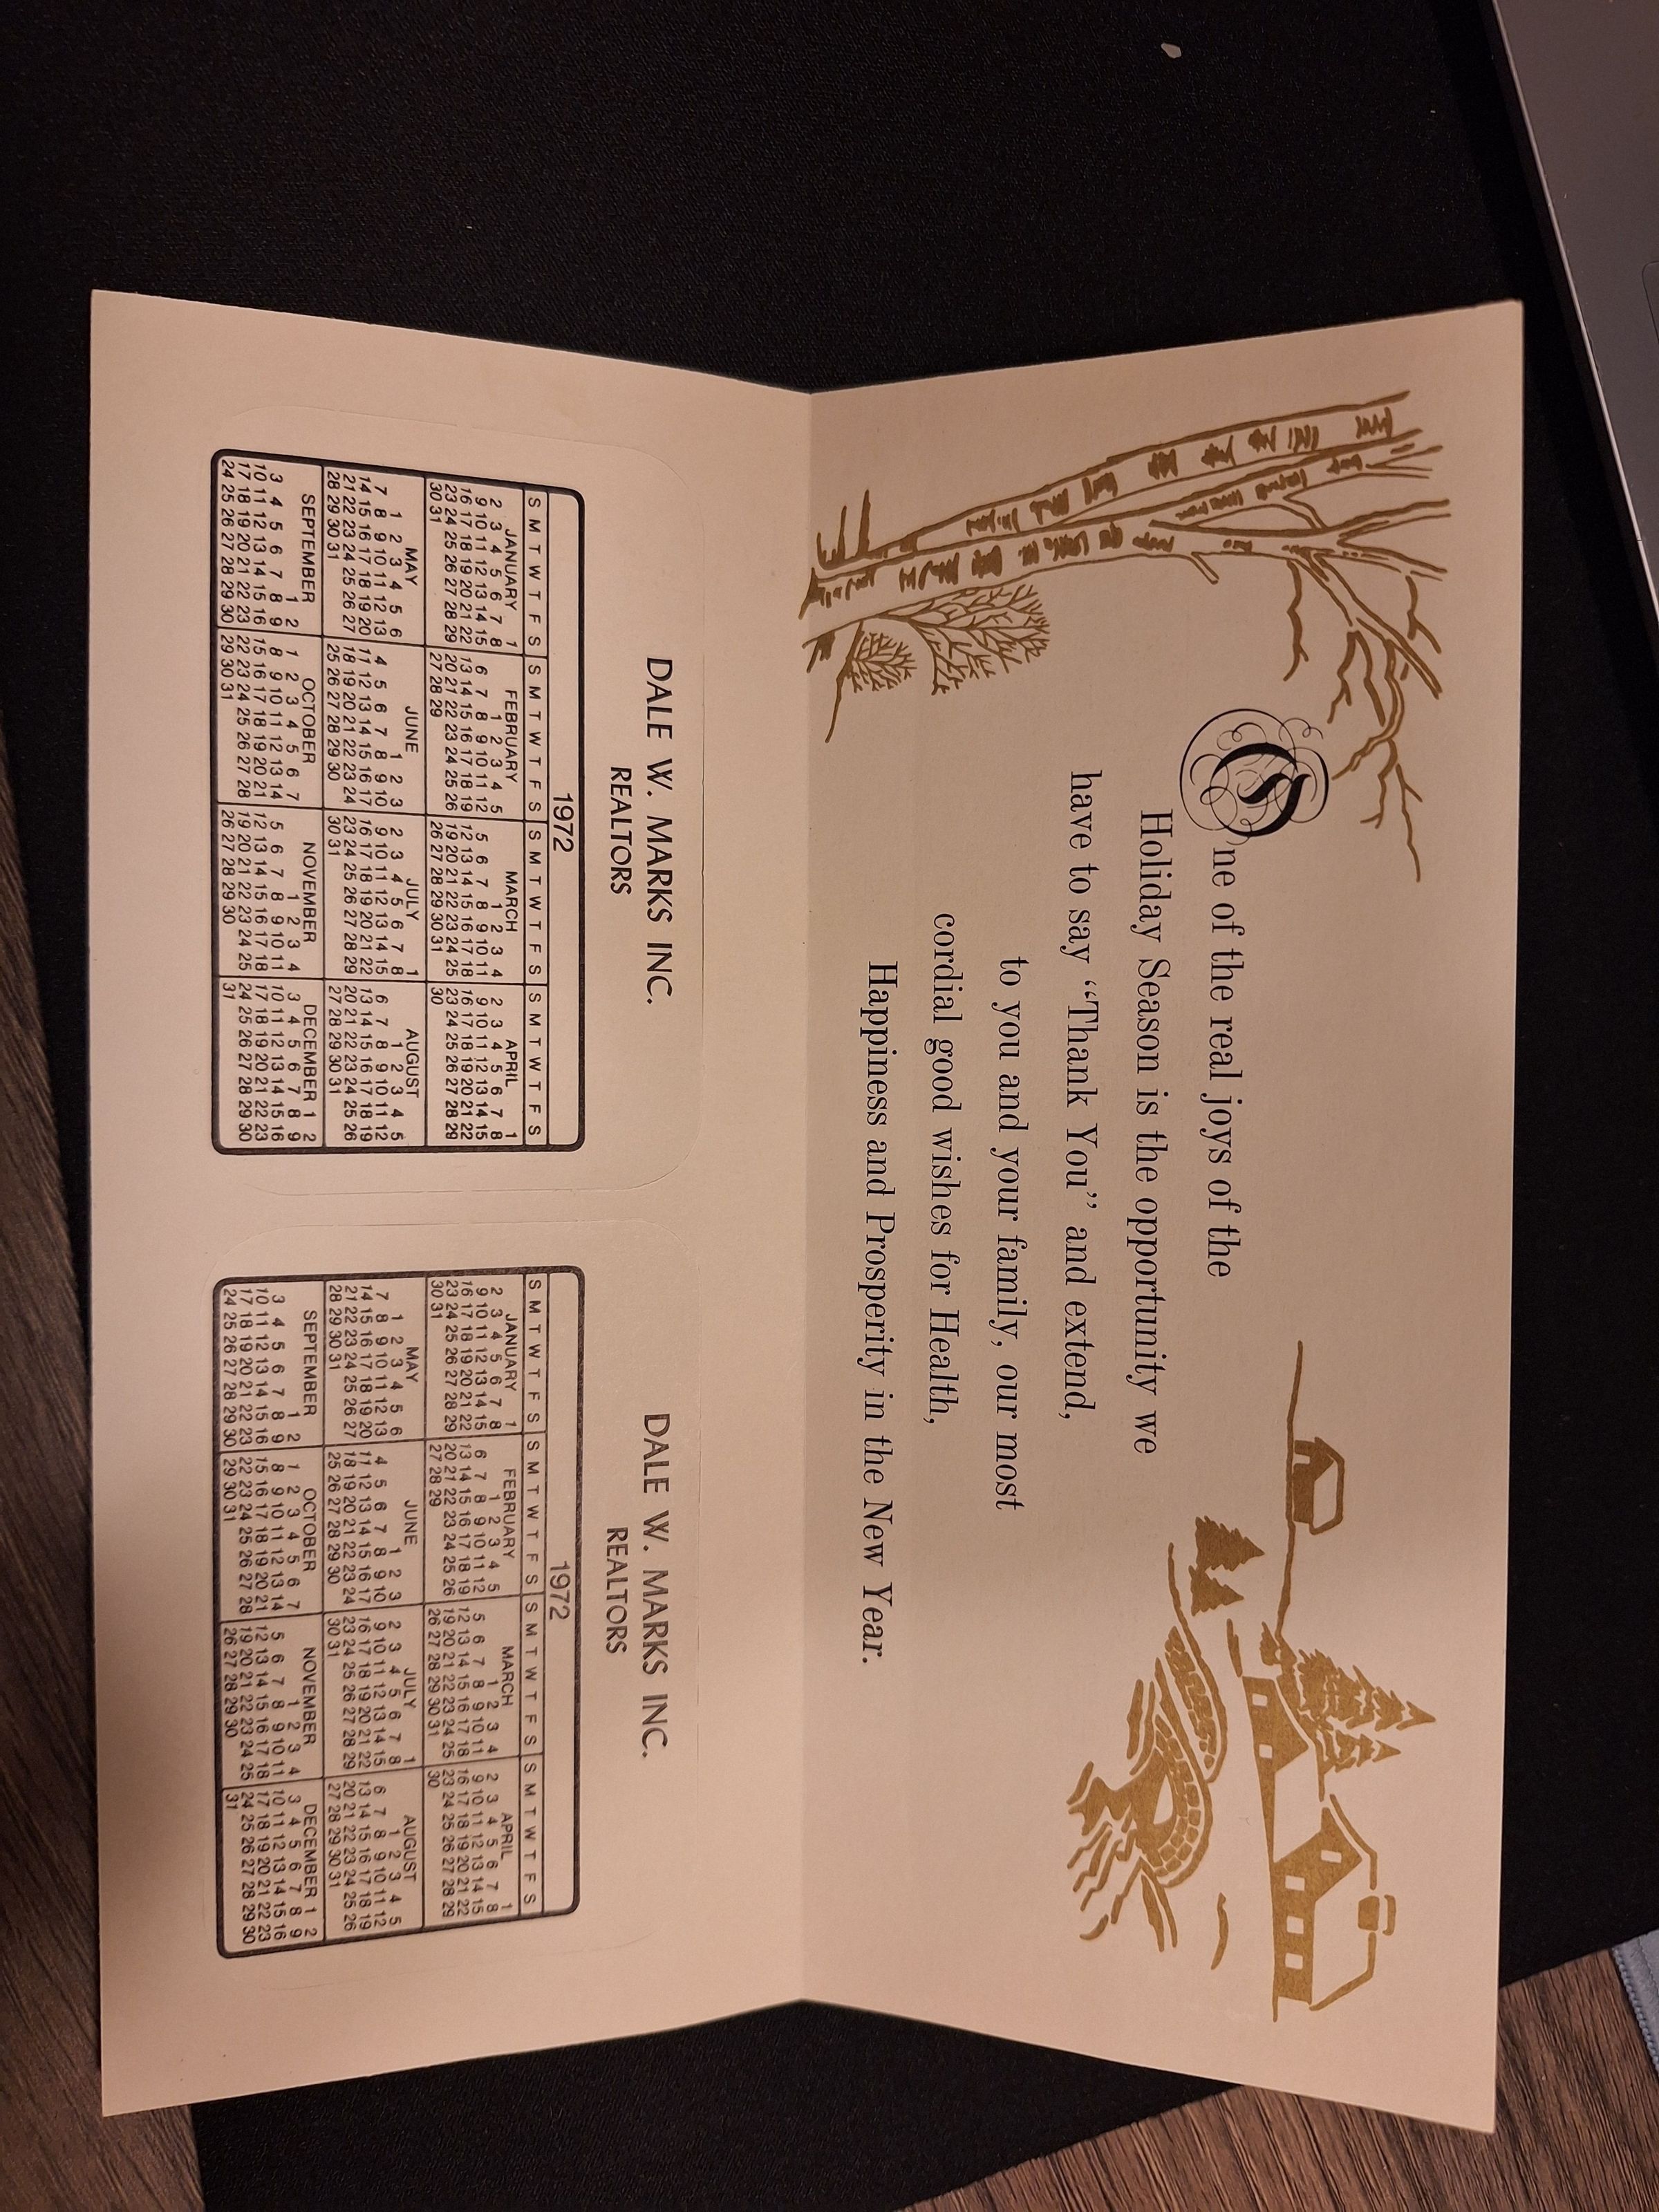 One of the real joys of the
Holiday Season is the opportunity we
have to say “Thank You” and extend,
to you and your family, our most
cordial good wishes for Health,
Happiness and Prosperity in the New Year.
DALE W. MARKS INC.
REALTORS
1972
S M T W T F S S M T W T F S S M T W T F S S M T W T F S
JANUARY 1
2 3 4 5 6 7 8
9 10 11 12 13 14 15
16 17 18 19 20 21 22
23 24 25 26 27 28 29
30 31
FEBRUARY
1 2 3 4 5
6 7 8 9 10 11 12
13 14 15 16 17 18 19
20 21 22 23 24 25 26
27 28 29
MARCH
1 2 3 4
5 6 7 8 9 10 11
12 13 14 15 16 17 18
19 20 21 22 23 24 25
26 27 28 29 30 31
APRIL 1
2 3 4 5 6 7 8
9 10 11 12 13 14 15
16 17 18 19 20 21 22
23 24 25 26 27 28 29
30
MAY
1 2 3 4 5 6
7 8 9 10 11 12 13
14 15 16 17 18 19 20
21 22 23 24 25 26 27
28 29 30 31
JUNE
1 2 3
4 5 6 7 8 9 10
11 12 13 14 15 16 17
18 19 20 21 22 23 24
25 26 27 28 29 30
JULY 1
2 3 4 5 6 7 8
9 10 11 12 13 14 15
16 17 18 19 20 21 22
23 24 25 26 27 28 29
30 31
AUGUST
1 2 3 4 5
6 7 8 9 10 11 12
13 14 15 16 17 18 19
20 21 22 23 24 25 26
27 28 29 30 31
SEPTEMBER
1 2
3 4 5 6 7 8 9
10 11 12 13 14 15 16
17 18 19 20 21 22 23
24 25 26 27 28 29 30
OCTOBER
1 2 3 4 5 6 7
8 9 10 11 12 13 14
15 16 17 18 19 20 21
22 23 24 25 26 27 28
29 30 31
NOVEMBER
1 2 3 4
5 6 7 8 9 10 11
12 13 14 15 16 17 18
19 20 21 22 23 24 25
26 27 28 29 30
DECEMBER 1 2
3 4 5 6 7 8 9
10 11 12 13 14 15 16
17 18 19 20 21 22 23
24 25 26 27 28 29 30
31
DALE W. MARKS INC.
REALTORS
1972
S M T W T F S S M T W T F S S M T W T F S S M T W T F S
JANUARY 1
2 3 4 5 6 7 8
9 10 11 12 13 14 15
16 17 18 19 20 21 22
23 24 25 26 27 28 29
30 31
FEBRUARY
1 2 3 4 5
6 7 8 9 10 11 12
13 14 15 16 17 18 19
20 21 22 23 24 25 26
27 28 29
MARCH
1 2 3 4
5 6 7 8 9 10 11
12 13 14 15 16 17 18
19 20 21 22 23 24 25
26 27 28 29 30 31
APRIL 1
2 3 4 5 6 7 8
9 10 11 12 13 14 15
16 17 18 19 20 21 22
23 24 25 26 27 28 29
30
MAY
1 2 3 4 5 6
7 8 9 10 11 12 13
14 15 16 17 18 19 20
21 22 23 24 25 26 27
28 29 30 31
JUNE
1 2 3
4 5 6 7 8 9 10
11 12 13 14 15 16 17
18 19 20 21 22 23 24
25 26 27 28 29 30
JULY 1
2 3 4 5 6 7 8
9 10 11 12 13 14 15
16 17 18 19 20 21 22
23 24 25 26 27 28 29
30 31
AUGUST
1 2 3 4 5
6 7 8 9 10 11 12
13 14 15 16 17 18 19
20 21 22 23 24 25 26
27 28 29 30 31
SEPTEMBER
1 2
3 4 5 6 7 8 9
10 11 12 13 14 15 16
17 18 19 20 21 22 23
24 25 26 27 28 29 30
OCTOBER
1 2 3 4 5 6 7
8 9 10 11 12 13 14
15 16 17 18 19 20 21
22 23 24 25 26 27 28
29 30 31
NOVEMBER
1 2 3 4
5 6 7 8 9 10 11
12 13 14 15 16 17 18
19 20 21 22 23 24 25
26 27 28 29 30
DECEMBER 1 2
3 4 5 6 7 8 9
10 11 12 13 14 15 16
17 18 19 20 21 22 23
24 25 26 27 28 29 30
31